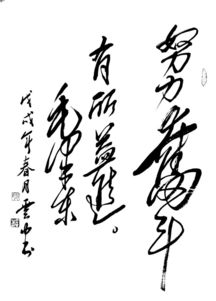 努力奋斗
有所益进。
毛泽东
戊戌年春月云中书